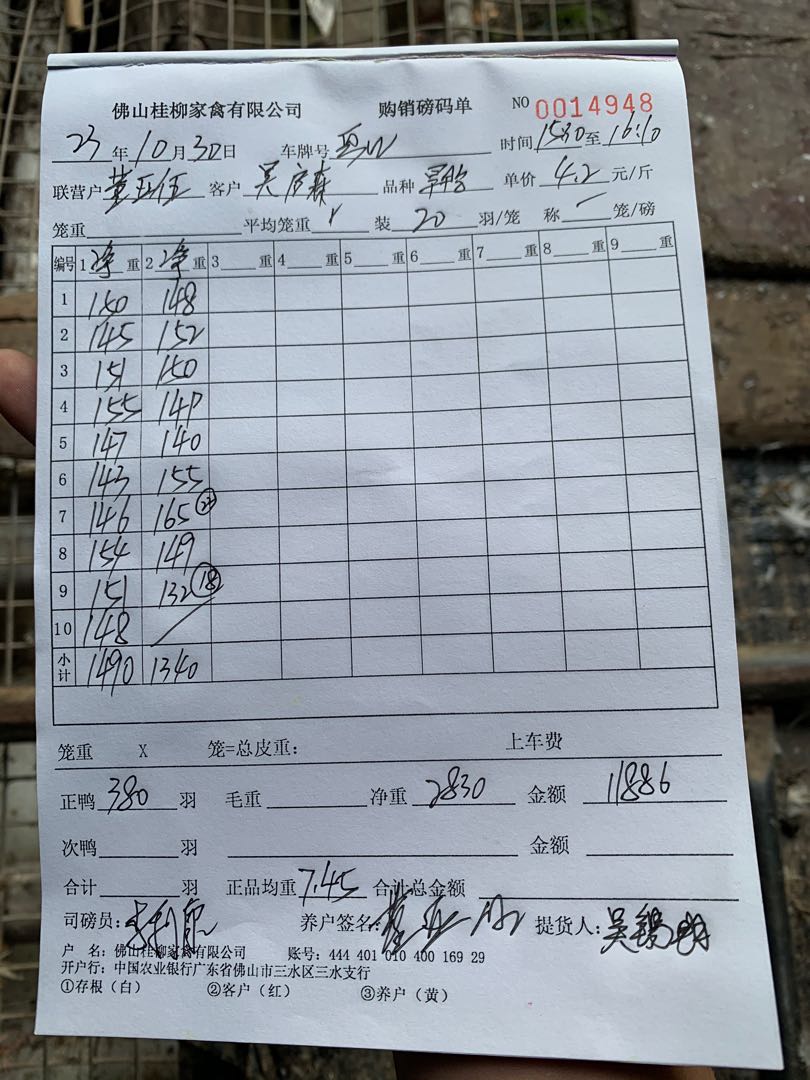 佛山桂柳家禽有限公司 购销磅码单 NO 0014948
23年10月30日 车牌号 时间 15:30至16:10
联营户 客户 吴 森 品种 单价 4.2 元/斤
笼重 平均笼重 装 20 羽/笼 称 一 笼/磅
编号 1 净 重 2 净 重 3 重 4 重 5 重 6 重 7 重 8 重 9 重
1 150 148
2 145 152
3 151 150
4 155 149
5 147 140
6 143 155
7 146 165 22
8 154 149
9 151 132 18
10 148 /
小计 1490 1340
笼重 X 笼=总皮重: 上车费
正鸭 380 羽 毛重 净重 2830 金额 11886
次鸭 羽 金额
合计 羽 正品均重 7.45 合计总金额
司磅员: 李利 养户签名: 提货人: 吴锡
户 名: 佛山桂柳家禽有限公司 账号: 444 401 010 400 169 29
开户行: 中国农业银行广东省佛山市三水区三水支行
①存根(白) ②客户(红) ③养户(黄)